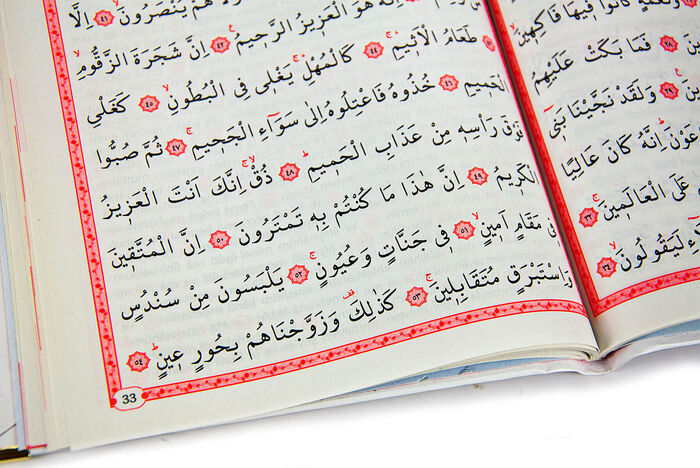 كَانُوا فِيهَا فَاكِهِينَ
٢٨ فَمَا بَكَتْ عَلَيْهِمُ
٢٩ وَلَقَدْ نَجَّيْنَا بَنِى
اِنَّهُ كَانَ عَالِيًا
عَلَى الْعَالَمِينَ ٣٢
لَيَقُولُونَ ٣٤
هُمْ يُنْصَرُونَ ٤١ اِلَّا
اِنَّهُ هُوَ الْعَزِيزُ الرَّحِيمُ ٤٢ اِنَّ شَجَرَةَ الزَّقُّومِ
طَعَامُ الْاَثِيمِ ٤٤ كَالْمُهْلِ يَغْلِى فِى الْبُطُونِ ٤٥ كَغَلْىِ
الْحَمِيمِ ٤٦ خُذُوهُ فَاعْتِلُوهُ اِلٰى سَوَٓاءِ الْجَحِيمِ ٤٧ ثُمَّ صُبُّوا
فَوْقَ رَاْسِهِ مِنْ عَذَابِ الْحَمِيمِ ٤٨ ذُقْ اِنَّكَ اَنْتَ الْعَزِيزُ
الْكَرِيمُ ٤٩ اِنَّ هٰذَا مَا كُنْتُمْ بِهِ تَمْتَرُونَ ٥٠ اِنَّ الْمُتَّقِينَ
فِى مَقَامٍ اَمِينٍ ٥١ فِى جَنَّاتٍ وَعُيُونٍ ٥٢ يَلْبَسُونَ مِنْ سُنْدُسٍ
وَاِسْتَبْرَقٍ مُتَقَابِلِينَ ٥٣ كَذٰلِكَ وَزَوَّجْنَاهُمْ بِحُورٍ عِينٍ ٥٤
33